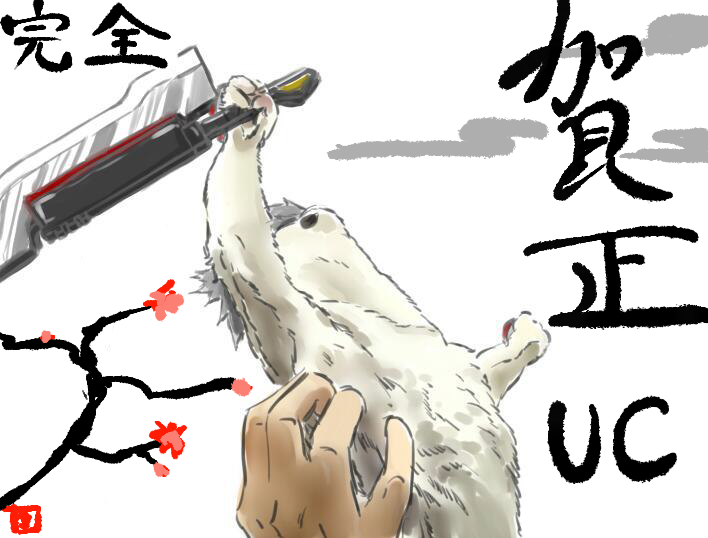 完全
賀正
UC